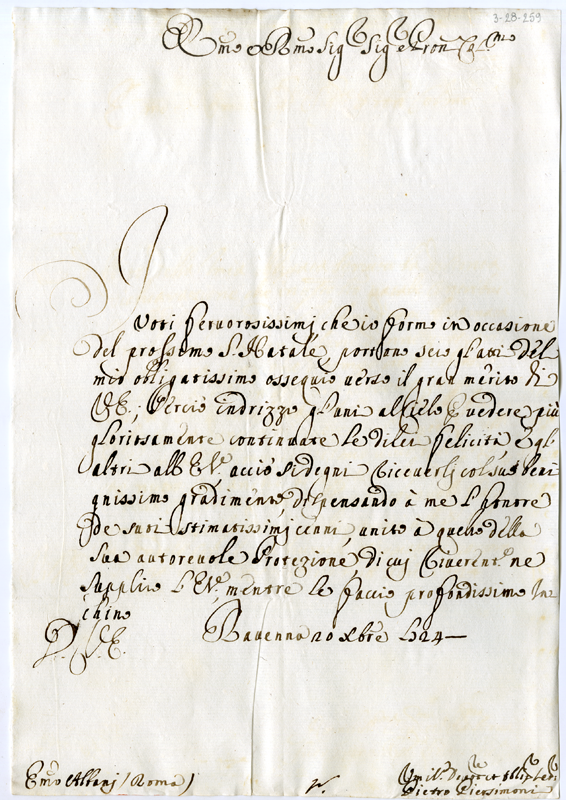 3-28-259
Em̃o e Rm̃o Sig.r Sig.r e Pron Col.mo
I
Voti feruorosissimi che io formo in occasione
del prossimo S. Natale, portono seco gl'atti del
mio obligatissimo ossequio uerso il gran merito di
V.E.; Perciò indrizzo gl'uni al Cielo per uedere più
gloriosamente continuate le di lei felicità e gl'
altri all'E.V. acciò si degni riceuerli col suo beni
gnissimo gradimento, dispensando à me l'honore
de suoi stimatissimi cenni, unito à quello della
sua autoreuole Protezione, di cui riuerent.e ne
supplico l'E.V. mentre le faccio profondissimo In
chino
D. V.E. Rauenna 20 Xbre 1724
Em̃o Albani (Roma)
Vmil.o Deuot.o Oblig.
Pietro Piersimoni